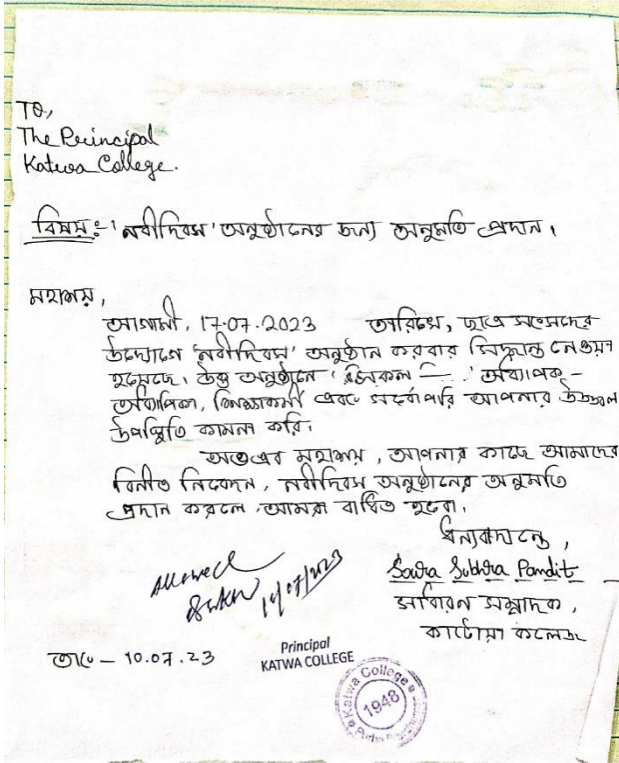 TO,
The Principal
Katwa College.
বিষয়ঃ- 'নবীদিবস' অনুষ্ঠানের জন্য অনুমতি প্রদান।
মহাশয়,
আগামী, 17.07.2023 তারিখে, ছাত্র সংসদের
উদ্যোগে 'নবীদিবস' অনুষ্ঠান করবার সিদ্ধান্ত নেওয়া
হয়েছে। উক্ত অনুষ্ঠানে অধ্যাপক-
অধ্যাপিকা, শিক্ষাকর্মী এবং সর্বোপরি আপনার উজ্জ্বল
উপস্থিতি কামনা করি।
অতএব মহাশয়, আপনার কাছে আমাদের
বিনীত নিবেদন, নবীদিবস অনুষ্ঠানের অনুমতি
প্রদান করলে আমরা বাধিত হবো।
ধন্যবাদান্তে,
Souva Subhra Pandit
সাধারন সম্পাদক,
কাটোয়া কলেজ
Allowed
10/07/2023
Principal
KATWA COLLEGE
তাং – 10.07.23
Katwa College
1948